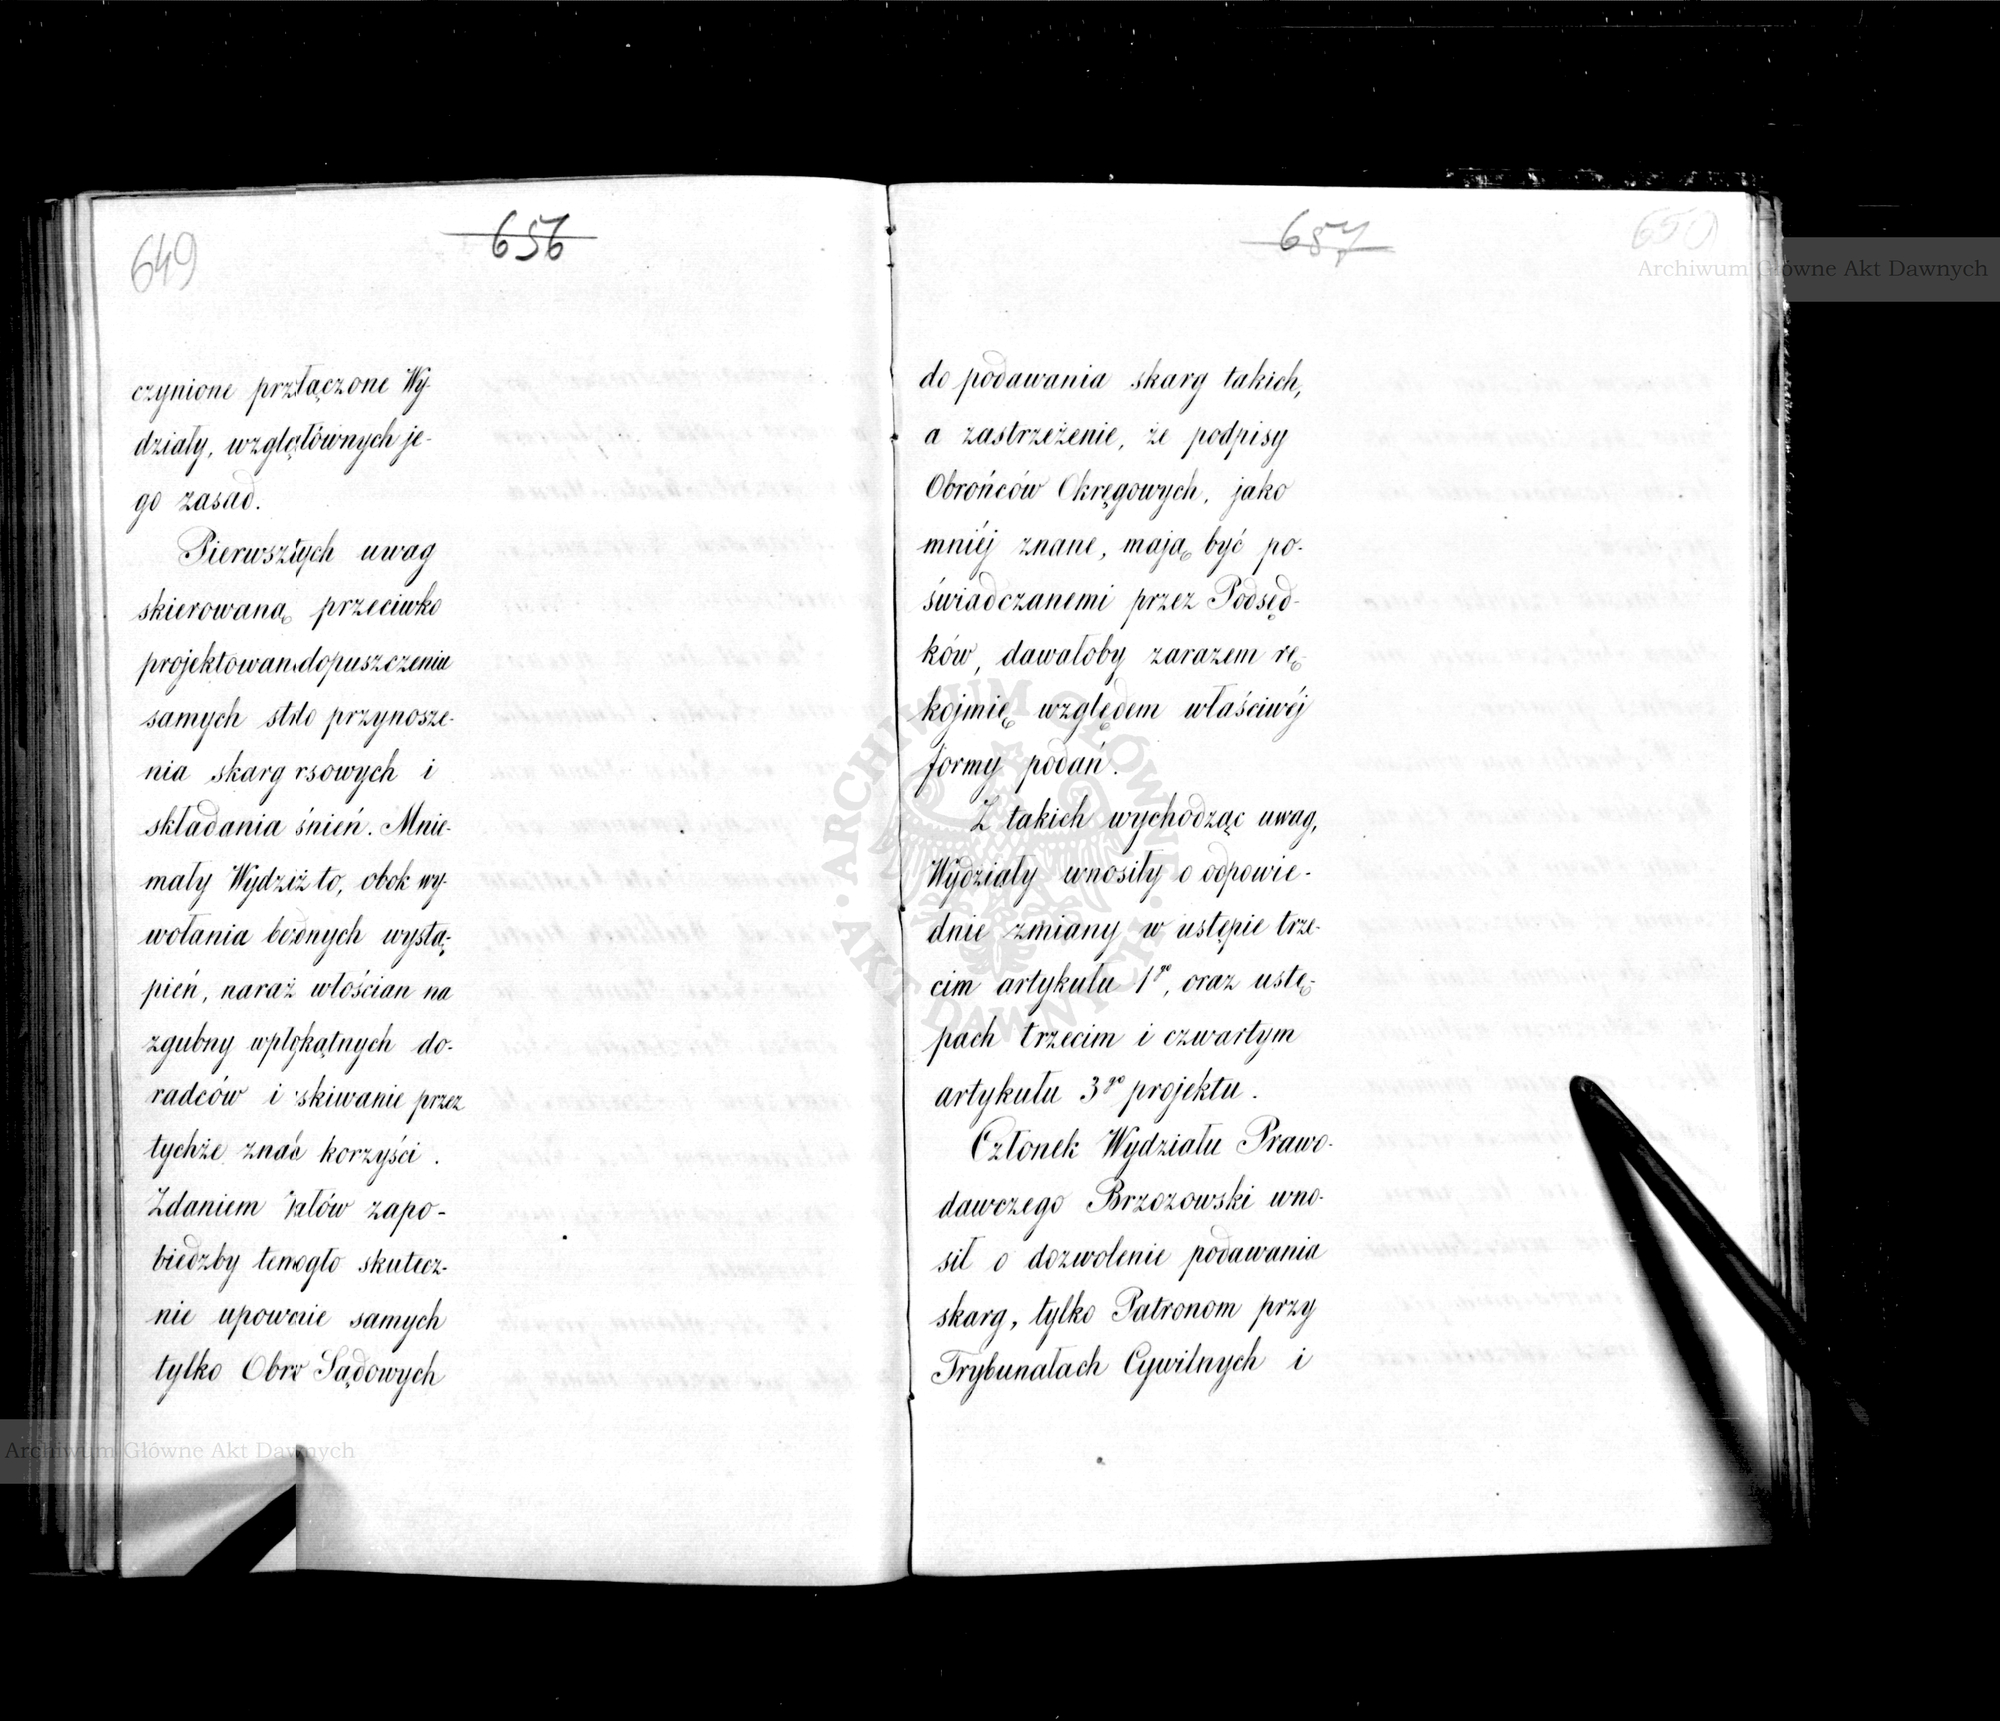 649
656
czynione przłączone Wy-
działy, wzglęłównych je-
go zasad.
Pierwszłych uwag
skierowaną przeciwko
projektowandopuszczenia
samych stdo przynosze-
nia skarg rsowych i
składania śnień. Mnie-
mały Wydziż to, obok wy-
wołania bezdnych wystą-
pień, naraż włościan na
zgubny wpłkątnych do-
radców i skiwanie przez
tychże znać korzyści.
Zdaniem załów zapo-
biedzby temogło skutecz-
nie upownie samych
tylko Obrz Sądowych
657
650
do podawania skarg takich,
a zastrzeżenie, że podpisy
Obrońców Okręgowych, jako
mniéj znane, mają być po-
świadczanemi przez Podsęd-
ków, dawałoby zarazem rę-
kojmię względem właściwéj
formy podań.
Z takich wychodząc uwag,
Wydziały wnosiły o odpowie-
dnie zmiany w ustępie trze-
cim artykułu 1go, oraz ustę-
pach trzecim i czwartym
artykułu 3go projektu.
Członek Wydziału Prawo-
dawczego Brzozowski wno-
sił o dozwolenie podawania
skarg, tylko Patronom przy
Trybunałach Cywilnych i
Archiwum Główne Akt Dawnych
ARCHIWUM GŁÓWNE AKT DAWNYCH
Archiwum Główne Akt Dawnych